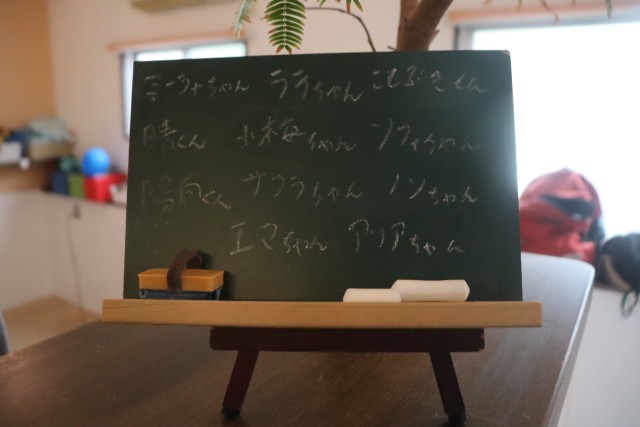 ミーティちゃん ララちゃん こぶきくん
晴くん 小梅ちゃん ソフィちゃん
陽向くん サクラちゃん ノンちゃん
エマちゃん アリアちゃん